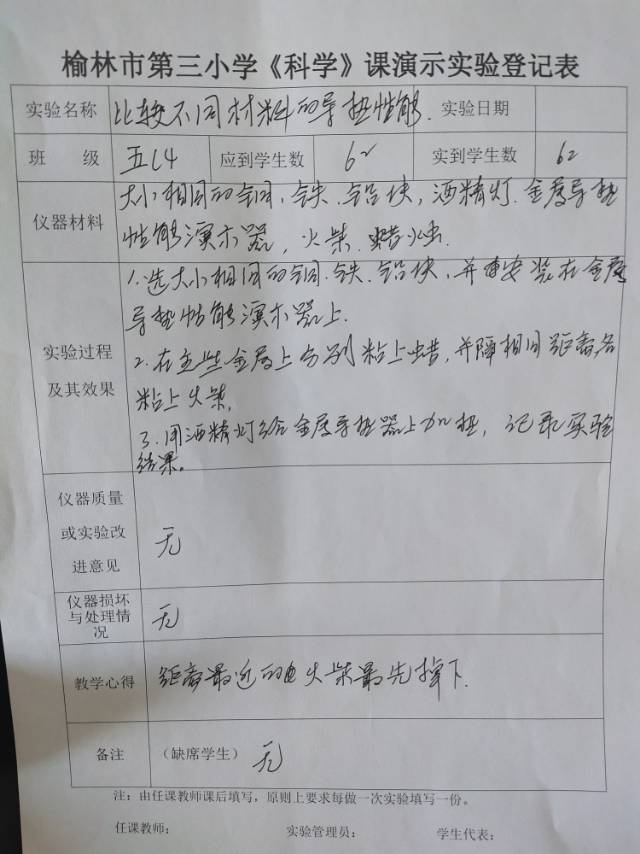 榆林市第三小学《科学》课演示实验登记表
实验名称 比较不同材料的导热性能. 实验日期
班 级 五(4 应到学生数 62 实到学生数 62
仪器材料
大小相同的铜、铁、铝块，酒精灯.金属导热
性能演示器，火柴.蜡烛.
实验过程
及其效果
1.选大小相同的铜.铁.铝块，并安装在金属
导热性能演示器上.
2.在这些金属上分别粘上蜡，并隔相同距离各
粘上火柴.
3.用酒精灯给金属导热器上加热，记录实验
结果。
仪器质量
或实验改
进意见
无
仪器损坏
与处理情
况
无
教学心得 距离最近的火柴最先掉下.
备注 （缺席学生） 无
注：由任课教师课后填写，原则上要求每做一次实验填写一份。
任课教师： 实验管理员： 学生代表：